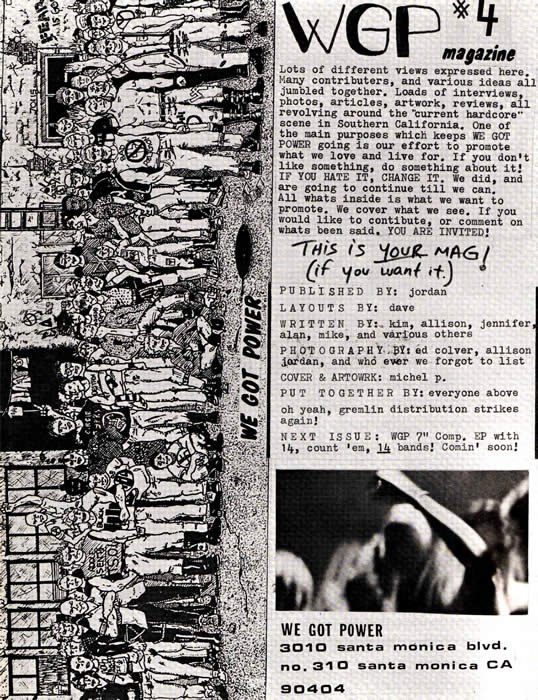 WGP #4
magazine
Lots of different views expressed here.
Many contributers, and various ideas all
jumbled together. Loads of interviews,
photos, articles, artwork, reviews, all
revolving around the "current hardcore"
scene in Southern California. One of
the main purposes which keeps WE GOT
POWER going is our effort to promote
what we love and live for. If you don't
like something, do something about it!
IF YOU HATE IT, CHANGE IT. We did, and
are going to continue till we can.
All whats inside is what we want to
promote. We cover what we see. If you
would like to contibute, or comment on
whats been said. YOU ARE INVITED!
THIS is YOUR MAG!
(if you want it.)
PUBLISHED BY: jordan
LAYOUTS BY: dave
WRITTEN BY: kim, allison, jennifer,
alan, mike, and various others
PHOTOGRAPHY BY: ed colver, allison
jordan, and who ever we forgot to list
COVER & ARTOWRK: michel p.
PUT TOGETHER BY: everyone above
oh yeah, gremlin distribution strikes
again!
NEXT ISSUE: WGP 7" Comp. EP with
14, count 'em, 14 bands! Comin' soon!
WE GOT POWER
3010 santa monica blvd.
no. 310 santa monica CA
90404
WE GOT POWER